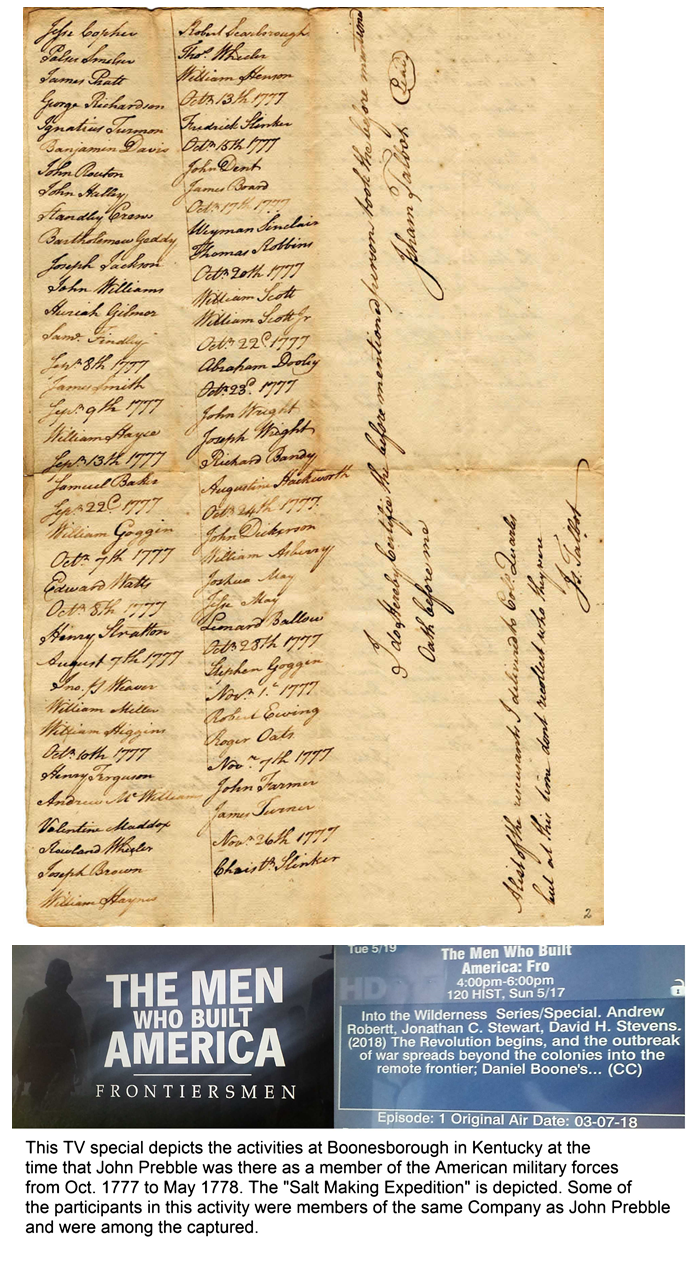 Jesse Copher
Palser Smelser
James Pratt
George Richardson
Ignatius Turmon
Benjamin Davis
John Routon
John Halley
Standley Crew
Bartholomew Gaddy
Joseph Jackson
John Williams
Huriah Gilmor
Saml. Findley
Sepr. 8th 1777
James Smith
Sepr. 9th 1777
William Hayce
Sepr. 13th 1777
Samuel Baker
Sepr. 22d. 1777
William Goggin
Octr. 7th 1777
Edward Watts
Octr. 8th 1777
Henry Stratton
August 7th 1777
Jno. Weaver
William Miller
William Higgins
Octr. 10th 1777
Henry Ferguson
Andrew McWilliam
Valentine Maddox
Rowland Wheeler
Joseph Brown
William Haynes
Robert Scarborough
Thos. Wheeler
William Henson
Octr. 13th 1777
Fredrick Slinker
Octr. 15th 1777
John Dent
James Board
Octr. 17th 1777
Weyman Sinclair
Thomas Robbins
Octr. 20th 1777
William Scott
William Scott Jr
Octr. 22d. 1777
Abraham Dooley
Octr. 23d. 1777
John Wright
Joseph Wright
Richard Bandy
Augustine Hackworth
Octr. 24th 1777
John Dickerson
William Asberry
Joshua May
Jesse May
Leonard Ballow
Octr. 28th 1777
Stephen Goggin
Novr. 1st 1777
Robert Ewing
Roger Oats
Novr. 7th 1777
John Farmer
James Turner
Novr. 26th 1777
Christr. Slinker
I do hereby Certifie the before mentioned person took the before mention
Oath before me
Isham Talbot
A list of the recusants I delivered to Colo. Quarles
but at this time dont recollect who they were
Is. Talbot
2
THE MEN
WHO BUILT
AMERICA
FRONTIERSMEN
Tue 5/19
HD
The Men Who Built
America: Fro
4:00pm-6:00pm
120 HIST, Sun 5/17
Into the Wilderness Series/Special. Andrew
Robertt, Jonathan C. Stewart, David H. Stevens.
(2018) The Revolution begins, and the outbreak
of war spreads beyond the colonies into the
remote frontier; Daniel Boone's... (CC)
Episode: 1 Original Air Date: 03-07-18
This TV special depicts the activities at Boonesborough in Kentucky at the
time that John Prebble was there as a member of the American military forces
from Oct. 1777 to May 1778. The "Salt Making Expedition" is depicted. Some of
the participants in this activity were members of the same Company as John Prebble
and were among the captured.